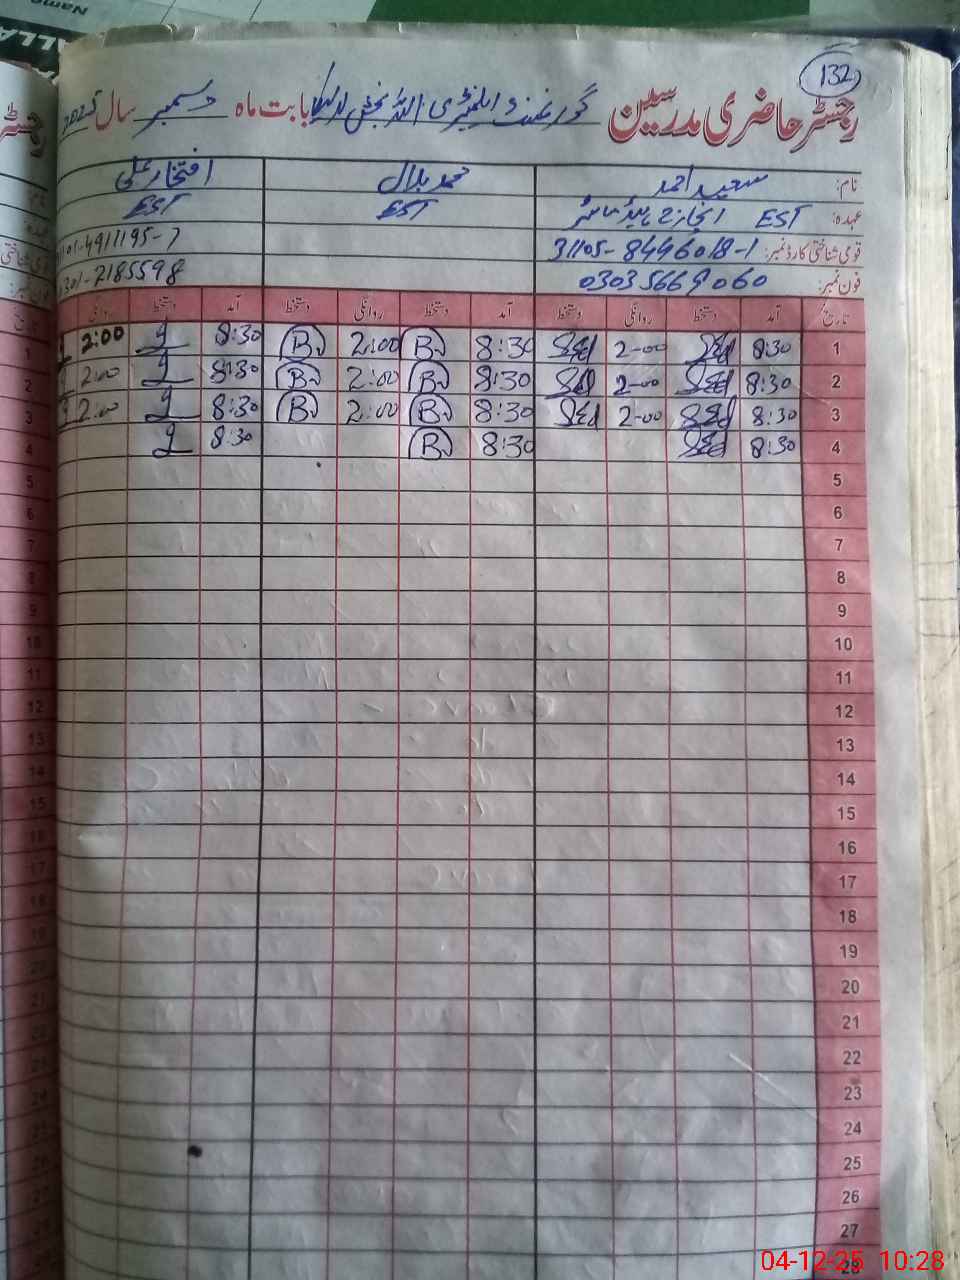 132
رجسٹر حاضری مدرسین گورنمنٹ ایلیمنٹری اللہ بخش بابت ماہ دسمبر سال 2025
نام: سعید احمد محمد بلال افتخار علی
عہدہ: EST انچارج ہیڈ ماسٹر EST EST
قومی شناختی کارڈ نمبر: 31105-8446018-1 4911195-7
فون نمبر: 03035669060 0301-2185598
تاریخ آمد دستخط روانگی دستخط آمد دستخط روانگی دستخط آمد دستخط روانگی
1 8:30 2-00 8:30 B 2:00 B 8:30 2:00
2 8:30 2-00 8:30 B 2:00 B 8:30 2:00
3 8:30 2-00 8:30 B 2:00 B 8:30 2:00
4 8:30 8:30 B 8:30
5
6
7
8
9
10
11
12
13
14
15
16
17
18
19
20
21
22
23
24
25
26
27
28
04-12-25 10:28